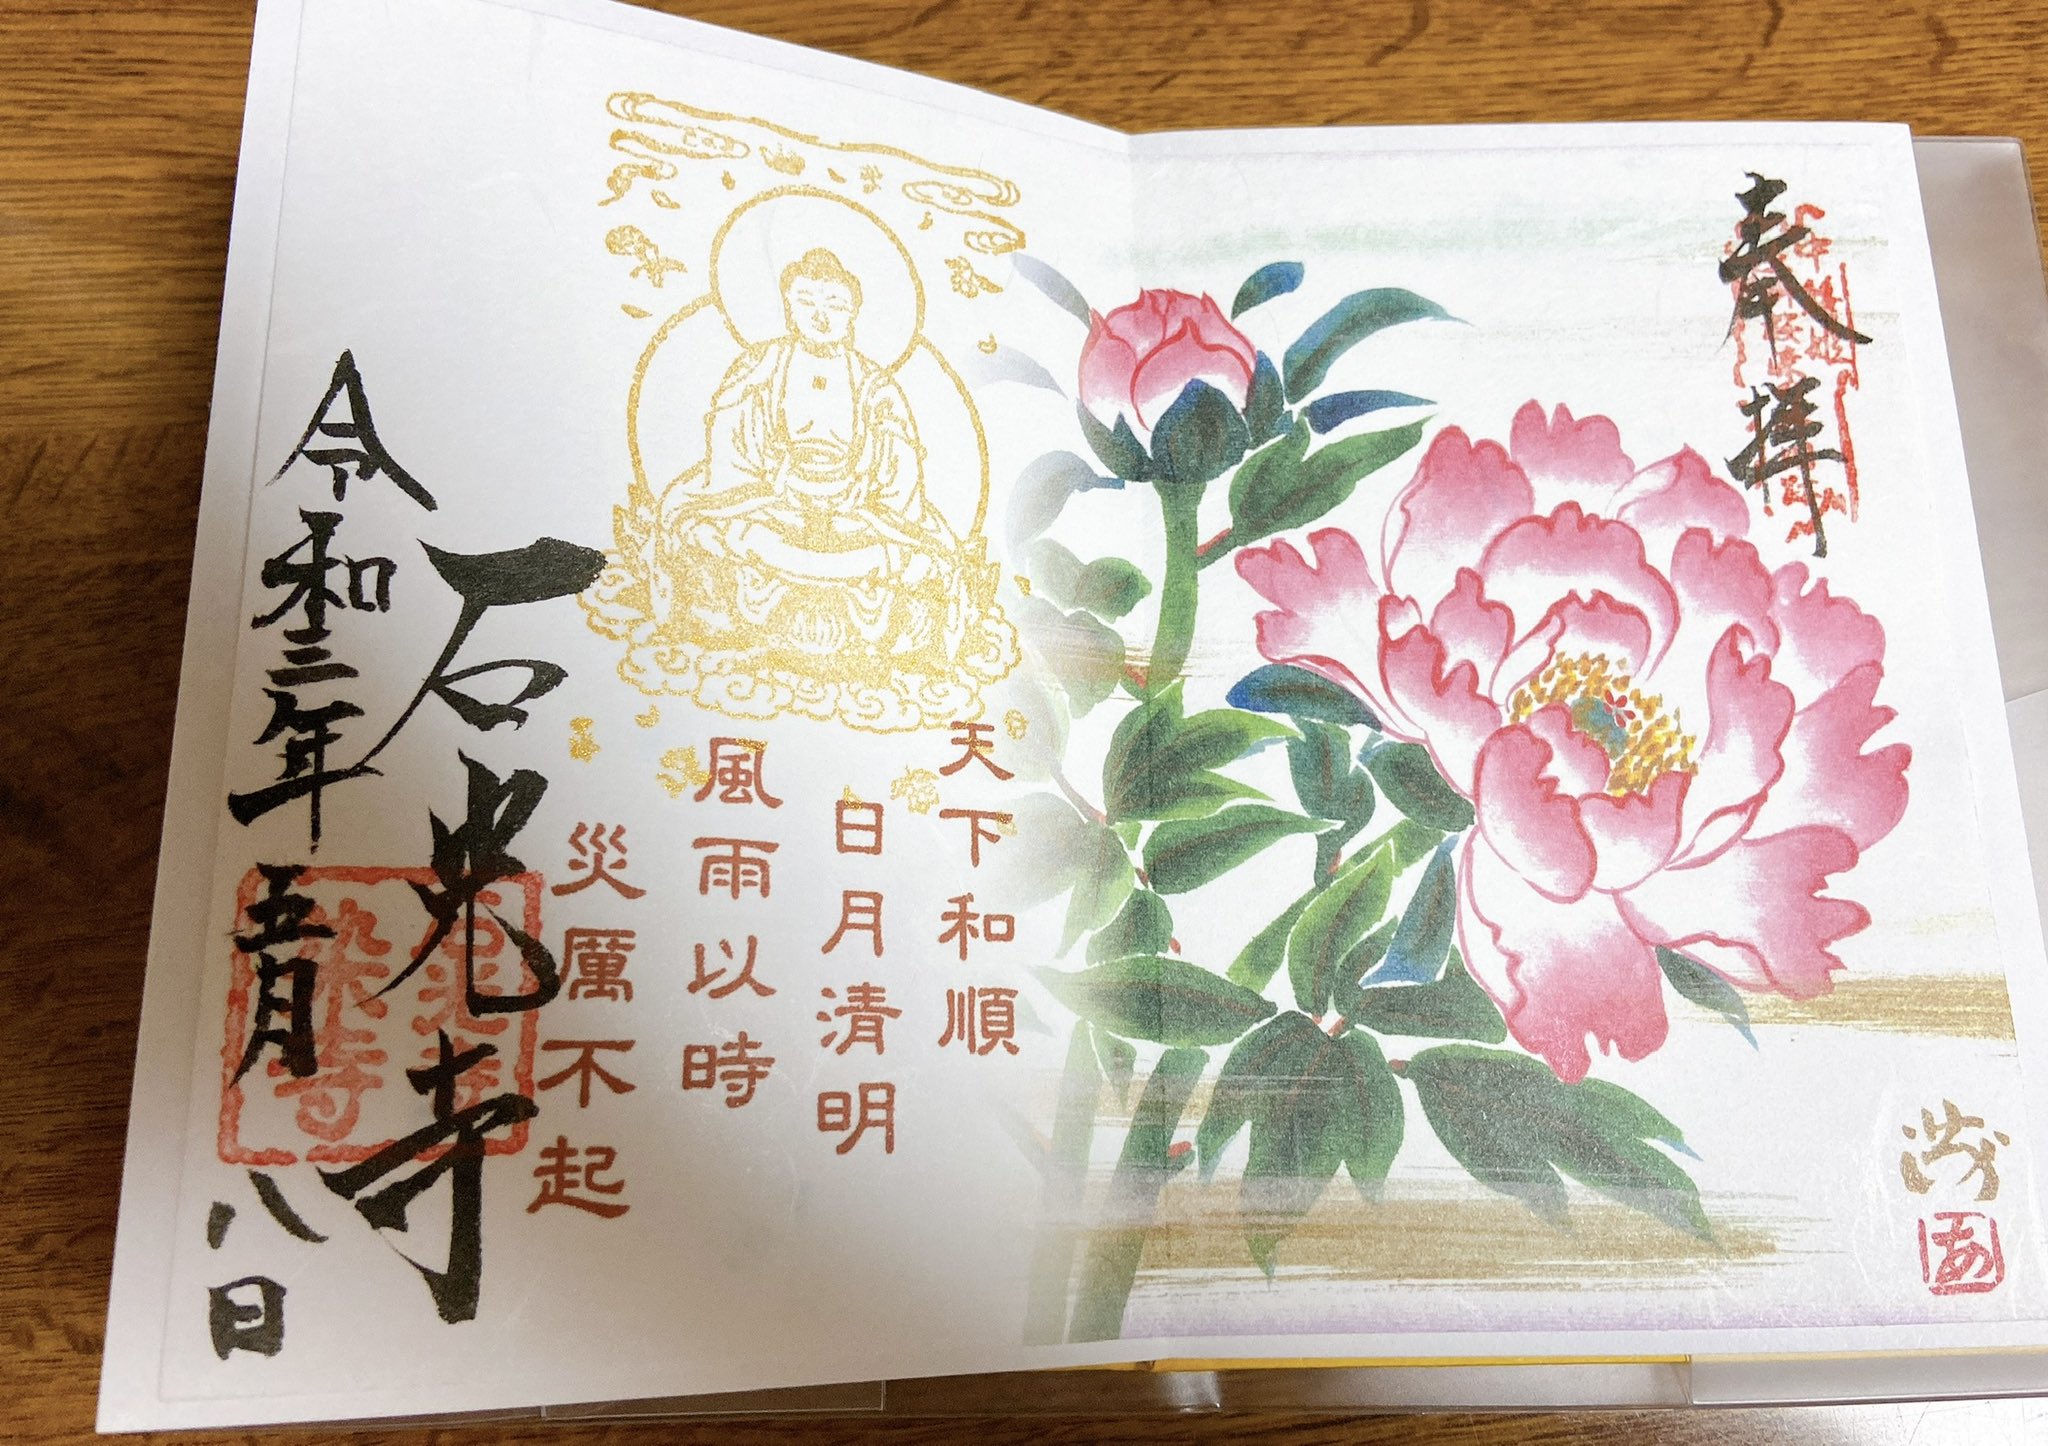 奉拝
天下和順
日月清明
風雨以時
災厲不起
石光寺
令和三年五月八日
染寺